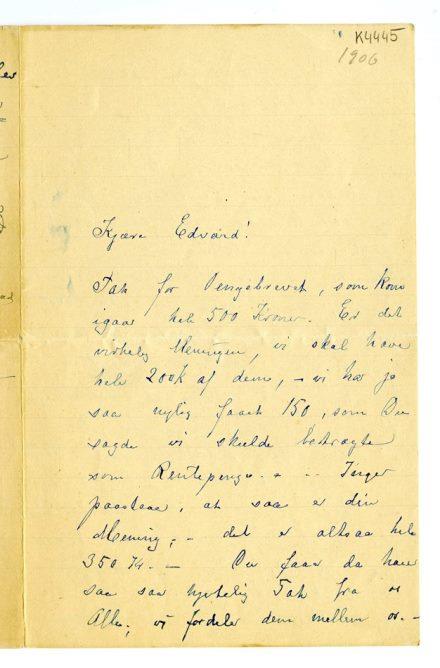 K4445
1906
Kjære Edvard!
Tak for Pengebrevet, som kom
igaar hele 500 Kroner. Er det
virkelig Meningen, vi skal have
hele 200k af dem, – vi har jo
saa nylig faaet 150, som Du
sagde vi skulde betragte
som Rentepenge. – – Inger
paastaar, at saa er din
Mening, – det er altsaa hele
350 Kr. – Du faar da have
saa saa hjertelig Tak fra os
Alle, vi fordeler dem mellem os. –